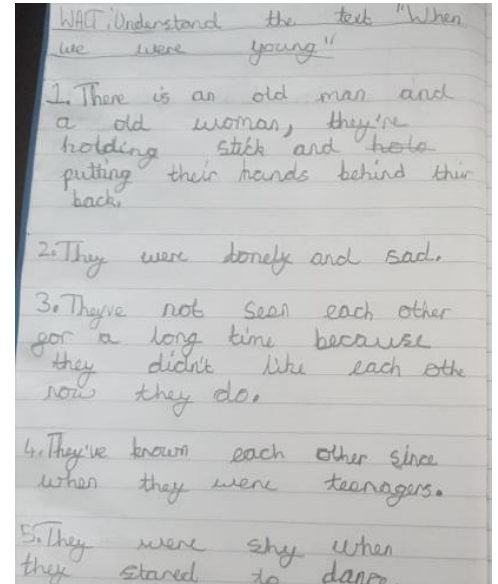 WALT: Understand the text "When
we were young"
1. There is an old man and
a old woman, they're
holding stick and hole
putting their hands behind thir
back.
2. They were lonely and sad.
3. Theyve not seen each other
gor a long time because
they didn't like each othe
now they do.
4. They've known each other since
when they were teenagers.
5. They were shy when
they stared to dance